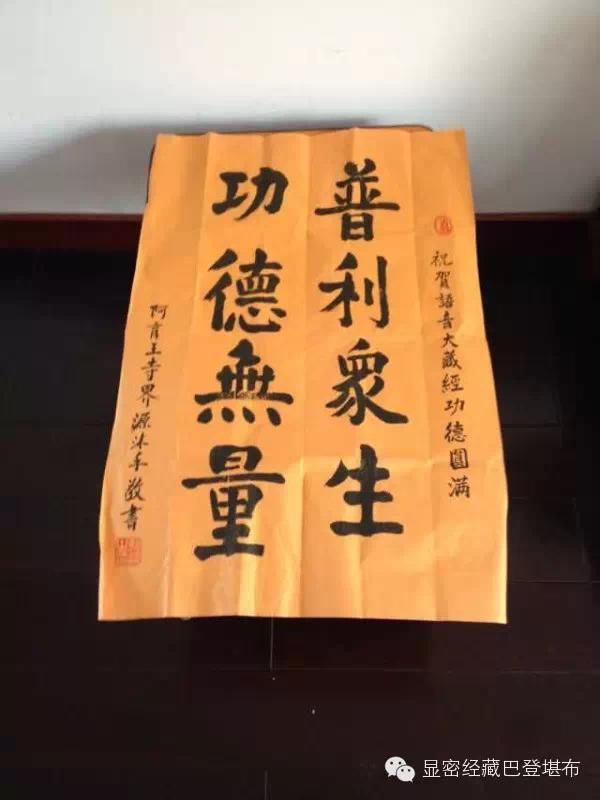 祝賀語音大藏經功德圓满
普利眾生
功德無量
阿育王寺界源沐手敬書
显密经藏巴登堪布